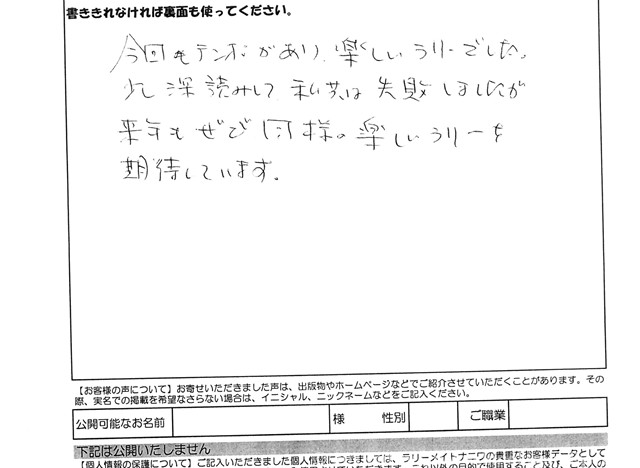 書ききれなければ裏面も使ってください。
今回もテンポがあり、楽しいラリーでした。
少し深読みして私共は失敗しましたが
来年もぜひ同様の楽しいラリーを
期待しています。
【お客様の声について】お寄せいただきました声は、出版物やホームページなどでご紹介させていただくことがあります。その
際、実名での掲載を希望なさらない場合は、イニシャル、ニックネームなどをご記入ください。
公開可能なお名前 様 性別 ご職業
下記は公開いたしません
【個人情報の保護について】ご記入いただきました個人情報につきましては、ラリーメイトナニワの貴重なお客様データとして